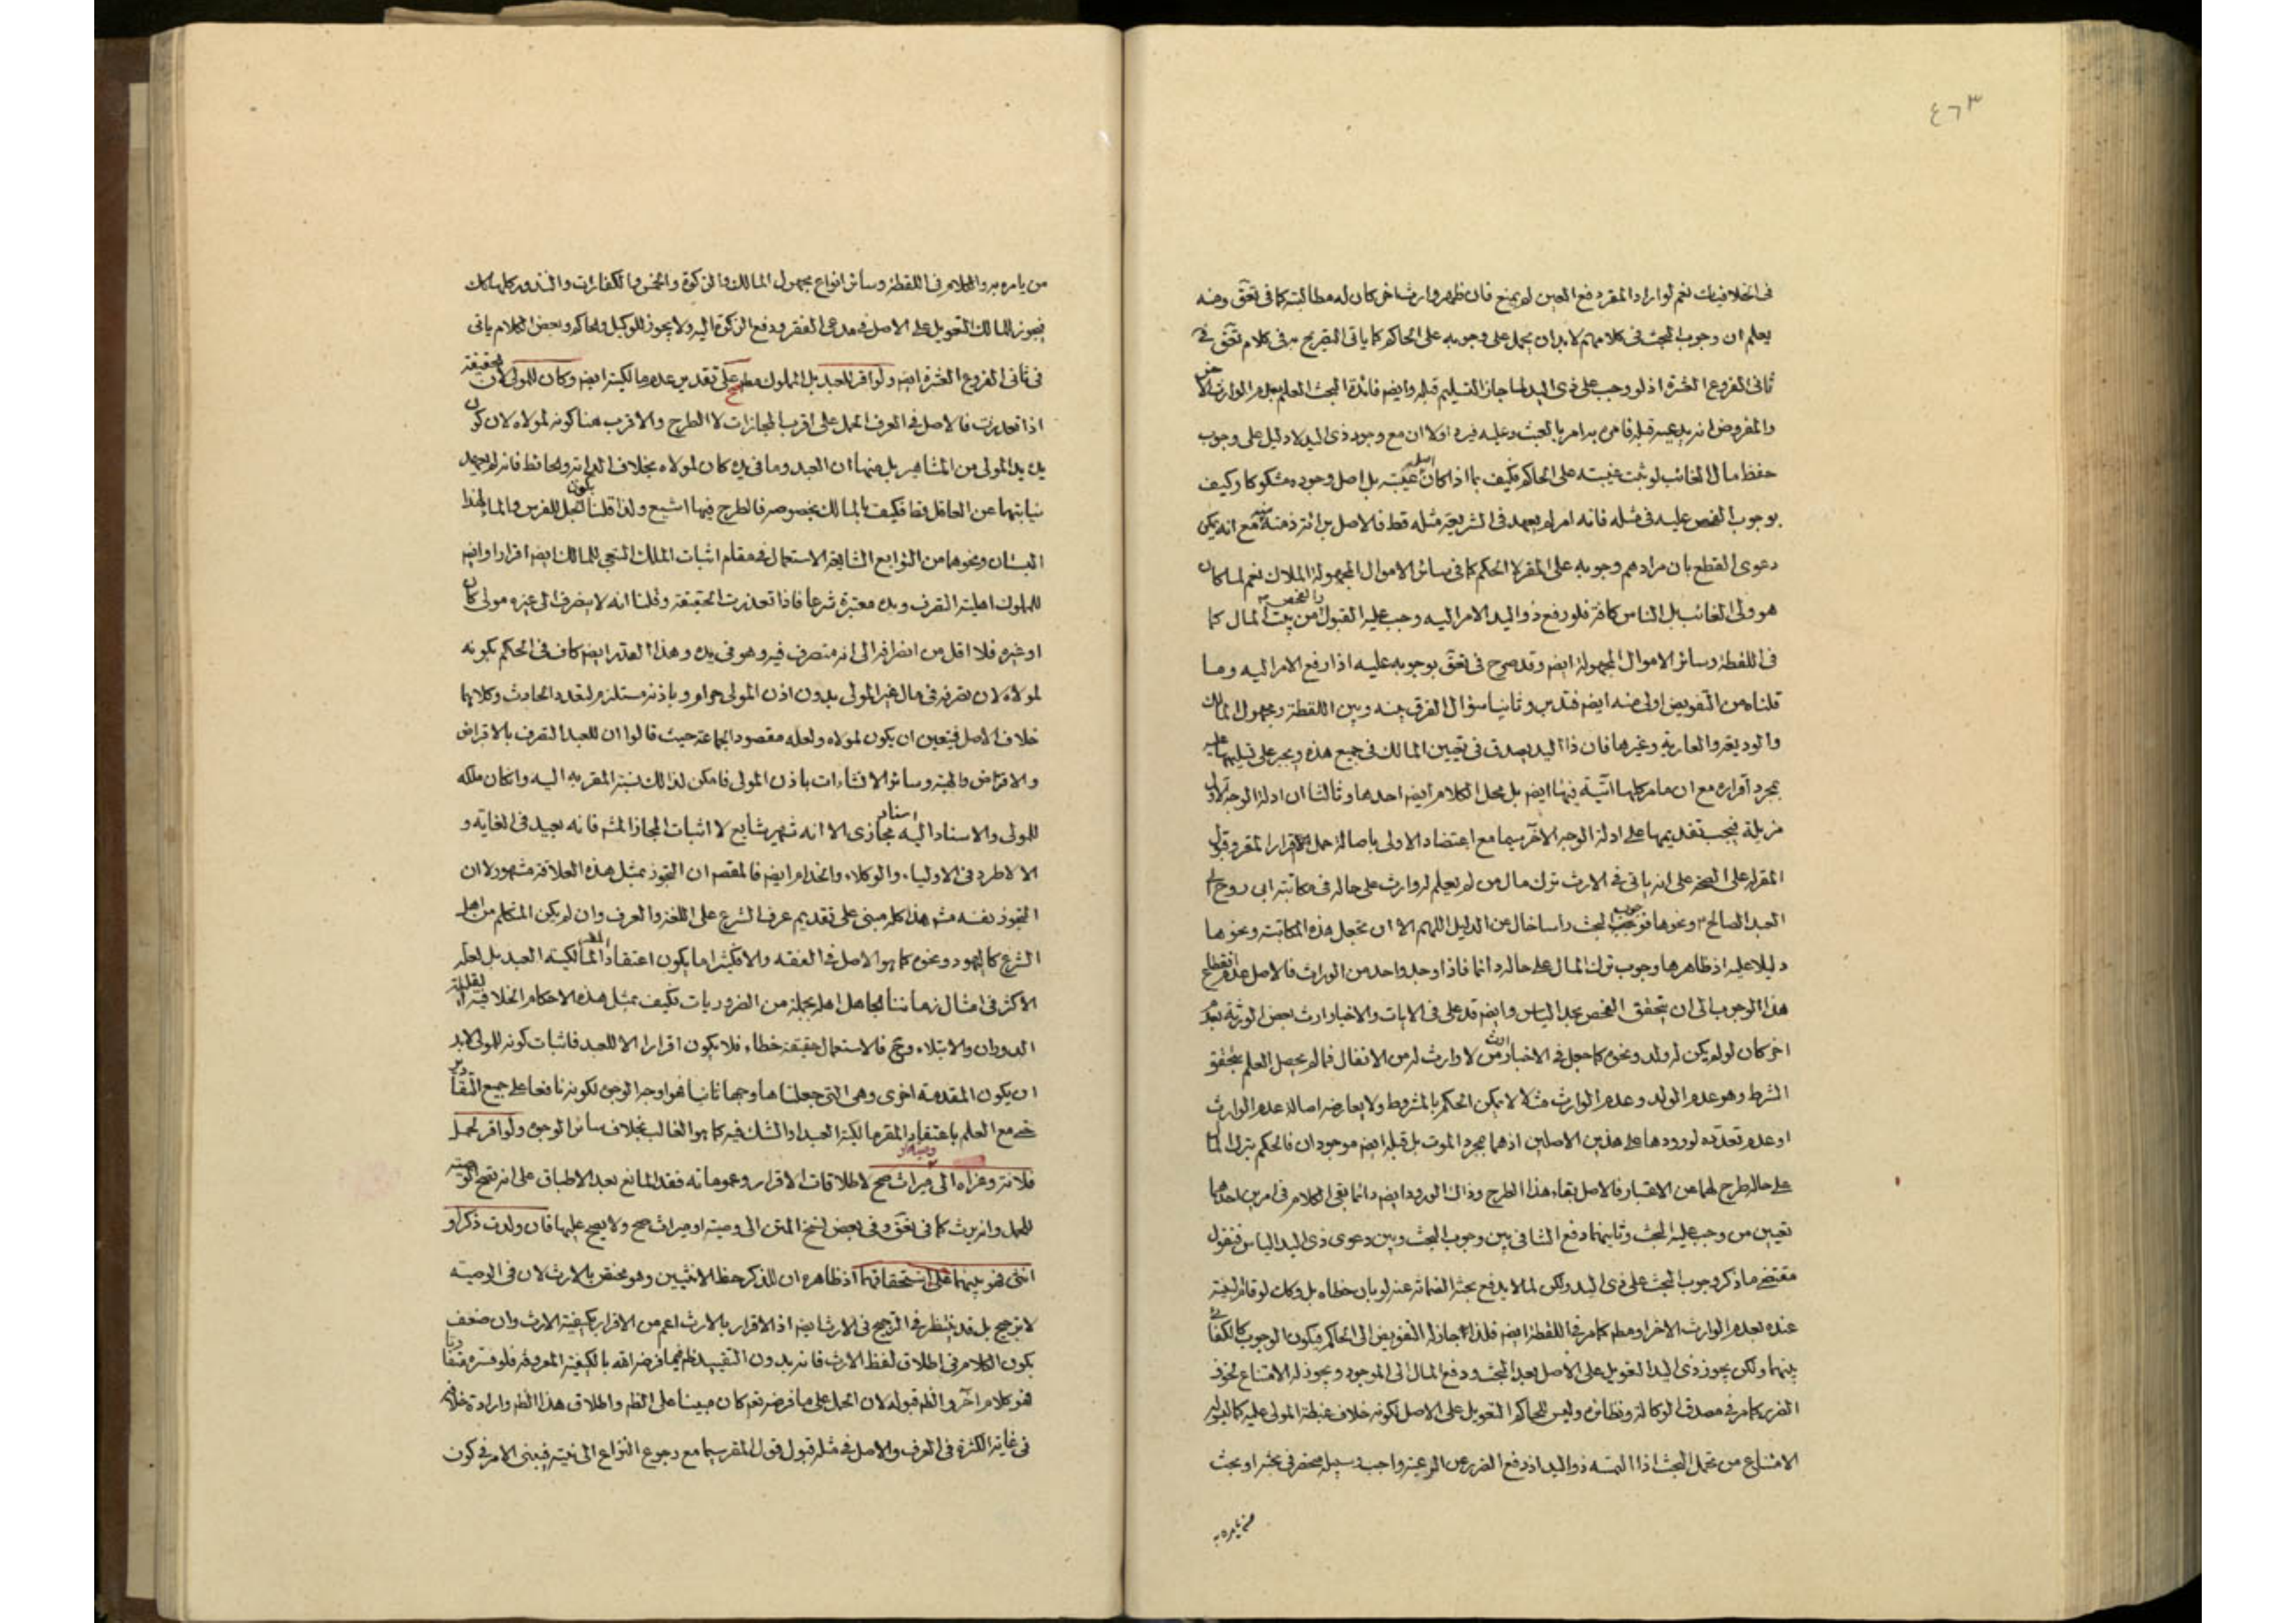 ٤٦٣
في الخلافيات نعم لو اراد المقر دفع العين لم يمنع فان ظهر وارث اخر كان له مطالبته كما في تعق ومنه
يعلم ان وجوب البحث في كلامهم لا بد ان يحمل على وجوبه على الحاكم كما ياتي التصريح به في كلام تعق في
ثاني الفروع العشرة اذ لو وجب على ذي اليد لما جاز التسليم قبله وايضا فائدة البحث العلم بعدم الوارث الاخر
والمفروض انه يدعيه قبله فامره به امر بالعبث وعليه فيرد اولا ان مع وجود ذي اليد لا دليل على وجوب
حفظ مال الغائب لو ثبت غيبته على الحاكم فكيف بما اذا كان اصل غيبته بل اصل وجوده مشكوكا وكيف
بوجوب الفحص عليه في مثله فانه امر لم يعهد في الشريعة مثله قط فالاصل برائة ذمته منه مع انه يمكن
دعوى القطع بان مرادهم وجوبه على المقر لا الحكم كما في سائر الاموال المجهولة الملاك نعم لما كان
هو ولي الغائب بل الناس كافة فلو رفع ذو اليد الامر اليه وجب عليه القبول والفحص من بيت المال كما
في اللقطة وسائر الاموال المجهولة ايضا وقد صرح في تعق بوجوبه عليه اذا رفع الامر اليه وما
قلناه من التفويض اولى منه ايضا فتدبر وثانيا سؤال الفرق بينه وبين اللقطة ومجهول المالك
والوديعة والعارية وغيرها فان ذا اليد يصدق في تعيين المالك في جميع هذه ويجبر على تسليمها عليه
بمجرد اقراره مع ان ما مر كلها اتية فيها ايضا بل محل الكلام ايضا احدها وثالثا ان ادلة الوجه الاول
مزيلة فيجب تقديمها على ادلة الوجه الاخر سيما مع اعتضاد الاولى باصالة حمل الاقرار المقر وقول
المقر له على الصحة على انه ياتي في الارث ترك مال من لم يعلم له وارث على حاله في مكاتبة ابي روح الى
العبد الصالح ونحوها فوجوب البحث راسا خال عن الدليل اللهم الا ان تجعل هذه المكاتبة ونحوها
دليلا عليه اذ ظاهرها وجوب ترك المال على حاله دائما فاذا وجد واحد من الوراث فالاصل عدم انقطاع
هذا الوجوب الى ان يتحقق الفحص بحد الياس وايضا قد علق في الايات والاخبار ارث بعض الورثة بعد
اخر كان لو لم يكن له ولد ونحوه كما جعل في الاخبار ارث من لا وارث له من الانفال فما لم يحصل العلم بتحقق
الشرط وهو عدم الولد وعدم الوارث مثلا لا يمكن الحكم بالمشروط ولا يعارضه اصالة عدم الوارث
او عدم تعدده لورودها على هذين الاصلين اذهما بمجرد الموت بل قبله ايضا موجودان فالحكم بترك المال
على حاله طرح لهما عن الاعتبار فالاصل بقاء هذا الطرح وذاك الورود ايضا دائما بقي الكلام في امرين احدهما
تعيين من وجب عليه البحث وثانيهما دفع التنافي بين وجوب البحث وبين دعوى ذي اليد الياس فنقول
مقتضى ما ذكر وجوب البحث على ذي اليد ولكن لما لا يدفع بحثه الضمان عنه لو بان خطاه بل وكان لو قام البينة
عنده بعدم الوارث الاخر او مطم كما مر في اللقطة ايضا فلذا جاز له التفويض الى الحاكم فيكون الوجوب كالكفائي
بينهما ولكن يجوز لذي اليد التعويل على الاصل بعد البحث ودفع المال الى الموجود ويجوز له الامتناع لخوف
الضرر كما مر في مصدق الوكالة ونظائره وليس للحاكم التعويل على الاصل لكونه خلاف غبطة المولى عليه كما ليس له
الامتناع من تحمل البحث اذا التمسه ذو اليد اذ دفع الضرر عن الرعية واجب وسبيله منحصر في بحثه او بحث
من يامره به
من يامره به والكلام في اللقطة وسائر انواع مجهول المالك والزكوة والخمس والكفارات والنذور كلها كك
فيجوز للمالك التعويل على الاصل في مدعي الفقر ودفع الزكوة اليه ولا يجوز للوكيل والحاكم وبعض الكلام ياتي
في ثاني الفروع العشرة ايضا ولو اقر للعبد بل المملوك مطم صح على تقدير عدم مالكيته ايضا وكان للمولى لان الحقيقة
اذا تعذرت فالاصل في العرف الحمل على اقرب المجازات لا الطرح والاقرب هنا كونه لمولاه لان كون
يده يد المولى من المشاهير بل منها ان العبد وما في يده كان لمولاه بخلاف الدابة والحائط فانه لم يعهد
نيابتهما عن العاقل قط فكيف بالمالك بخصوصه فالطرح فيها اشيع ولذا قلنا يكون الجل للفرس والماء لهذا
البستان ونحوها من التوابع الشايعة الاستعمال في مقام اثبات الملك الشخي للمالك ايضا اقرارا وايضا
للمملوك اهلية التصرف ويده معتبرة شرعا فاذا تعذرت الحقيقة وقلنا انه لا يصرف الى غيره مولى كان
او غيره فلا اقل من انصرافه الى انه متصرف فيه وهو في يده وهذا القدر ايضا كاف في الحكم بكونه
لمولاه لان تصرفه في مال غير المولى بدون اذن المولى حرام وباذنه مستلزم لتعدد الحادث وكلاهما
خلاف الاصل فيتعين ان يكون لمولاه ولعله مقصود الجماعة حيث قالوا ان للعبد التصرف بالاقراض
والاقتراض والهبة وسائر الانشاءات باذن المولى فامكن لذلك نسبة المقر به اليه وان كان ملكه
للمولى والاسناد اليه اسناد مجازي الا انه شهير شايع لا اثبات المجاز المشم فانه بعيد في الغاية و
الا لاطرد في الاولياء والوكلاء والخدام ايضا فالمقصم ان التجوز بمثل هذه العلاقة مشهور لا ان
التجوز نفسه مشم هذا كله مبني على تقديم عرف الشرع على اللغة والعرف وان لم يكن المتكلم من اهل
الشرع كاليهود ونحوه كما هو الاصل في الفقه والا فكثيرا ما يكون اعتقاد المقر مالكية العبد بل لعله
الاكثر في امثال زماننا الجاهل اهله بجملة من الضروريات فكيف بمثل هذه الاحكام الخلافية القليلة
الدوران والابتلاء وح فالاستعمال حقيقة خطاء فلا يكون اقرارا الا للعبد فاثبات كونه للمولى لابد
ان يكون المقدمة اخرى وهي التي جعلناها وجها ثانيا فهو اوجه الوجوه لكونه نافعا على جميع التقادير
حتى مع العلم باعتقاد المقر مالكية العبد او الشك فيه كما هو الغالب بخلاف سائر الوجوه ولو اقر لحمل
فلانة وعزاه الى وصية او ميراث صح لاطلاقات الاقرار وعموماته فقد المانع بعد الاطباق على انه تصح الوصية
للحمل وانه يرث كما في تعق وفي بعض نسخ المتن الى وصية او ميراث صح ولا يصح عليها فان ولدت ذكرا و
انثى فهو بينهما على استحقاقهما اذ ظاهره ان للذكر حظ الانثيين وهو مختص بالارث لان في الوصية
لا ترجيح بل قد ينظر في الترجيح في الارث ايضا اذ الاقرار بالارث اعم من الاقرار بكيفية الارث وان ضعف
بكون الكلام في اطلاق لفظ الارث فانه بدون التقييد ظم فيما فرض الله بالكيفية المعروفة فلو فسره متفاوتا
فهو كلام اخر والظم قبوله لان الحمل على ما فرضه تعم كان مبينا على الظم واطلاق هذا الظم وارادة خلافه
في غاية الكثرة في العرف والاصل في مثله قبول قول المقر سيما مع رجوع النزاع الى نيته فيبنى الامر في كون